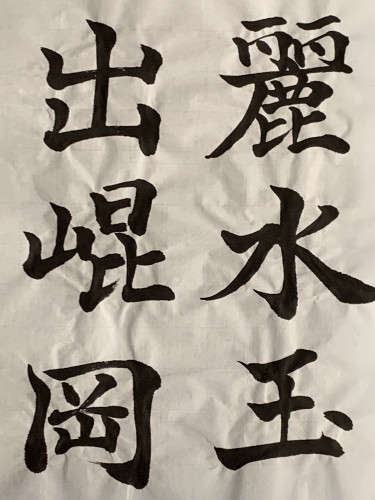 麗水玉
出崐岡